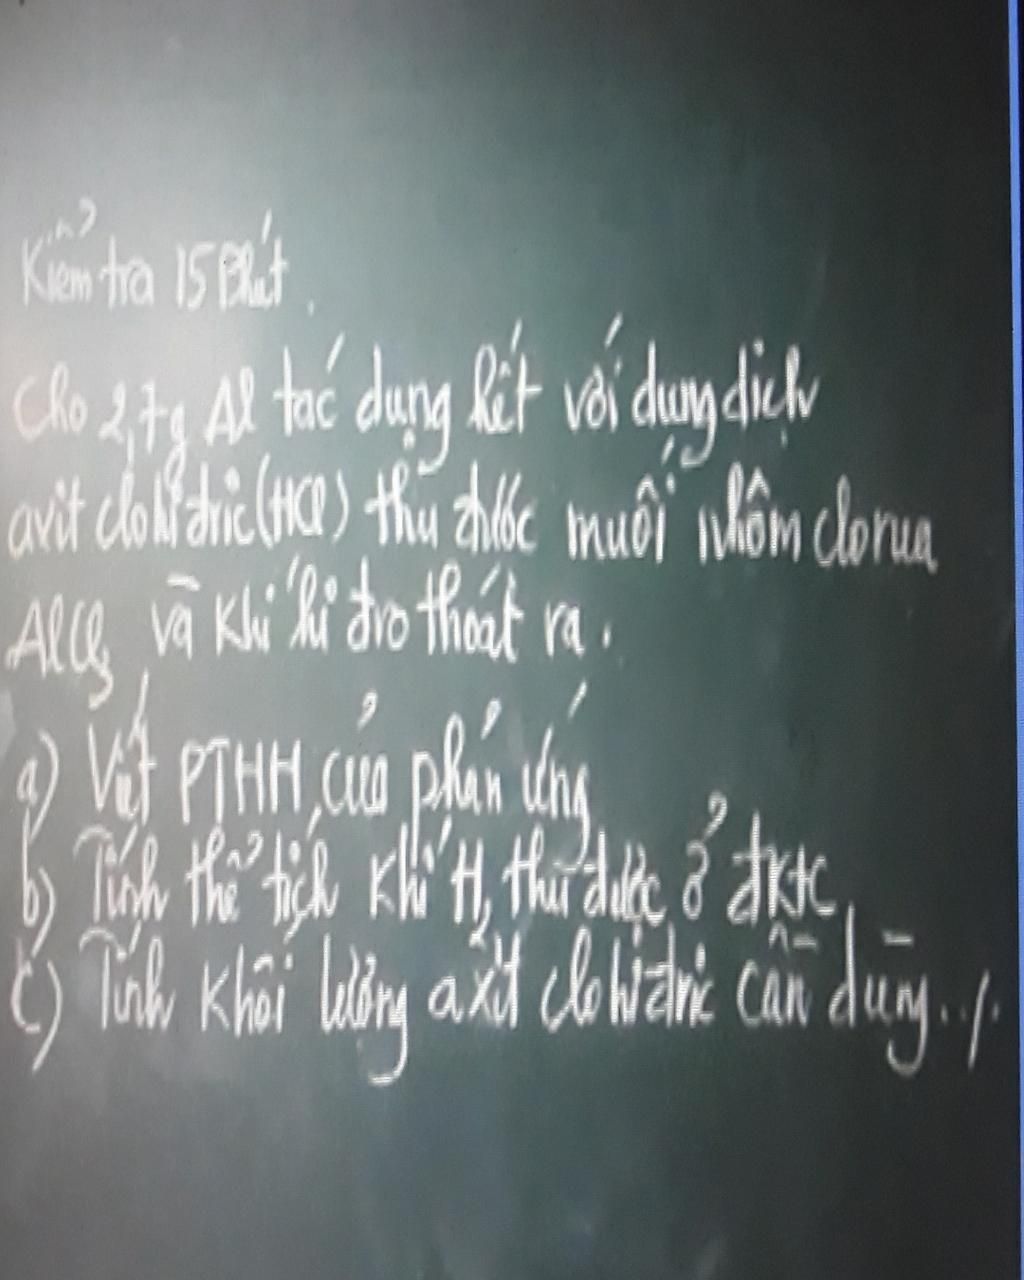 Kiểm tra 15 Phút.
Cho 2,7g Al tác dụng hết với dung dịch
axit clohiđric (HCl) thu được muối nhôm clorua
AlCl3 và khí hiđro thoát ra.
a) Viết PTHH của phản ứng
b) Tính thể tích khí H2 thu được ở đktc
c) Tính khối lượng axit clohiđric cần dùng../.